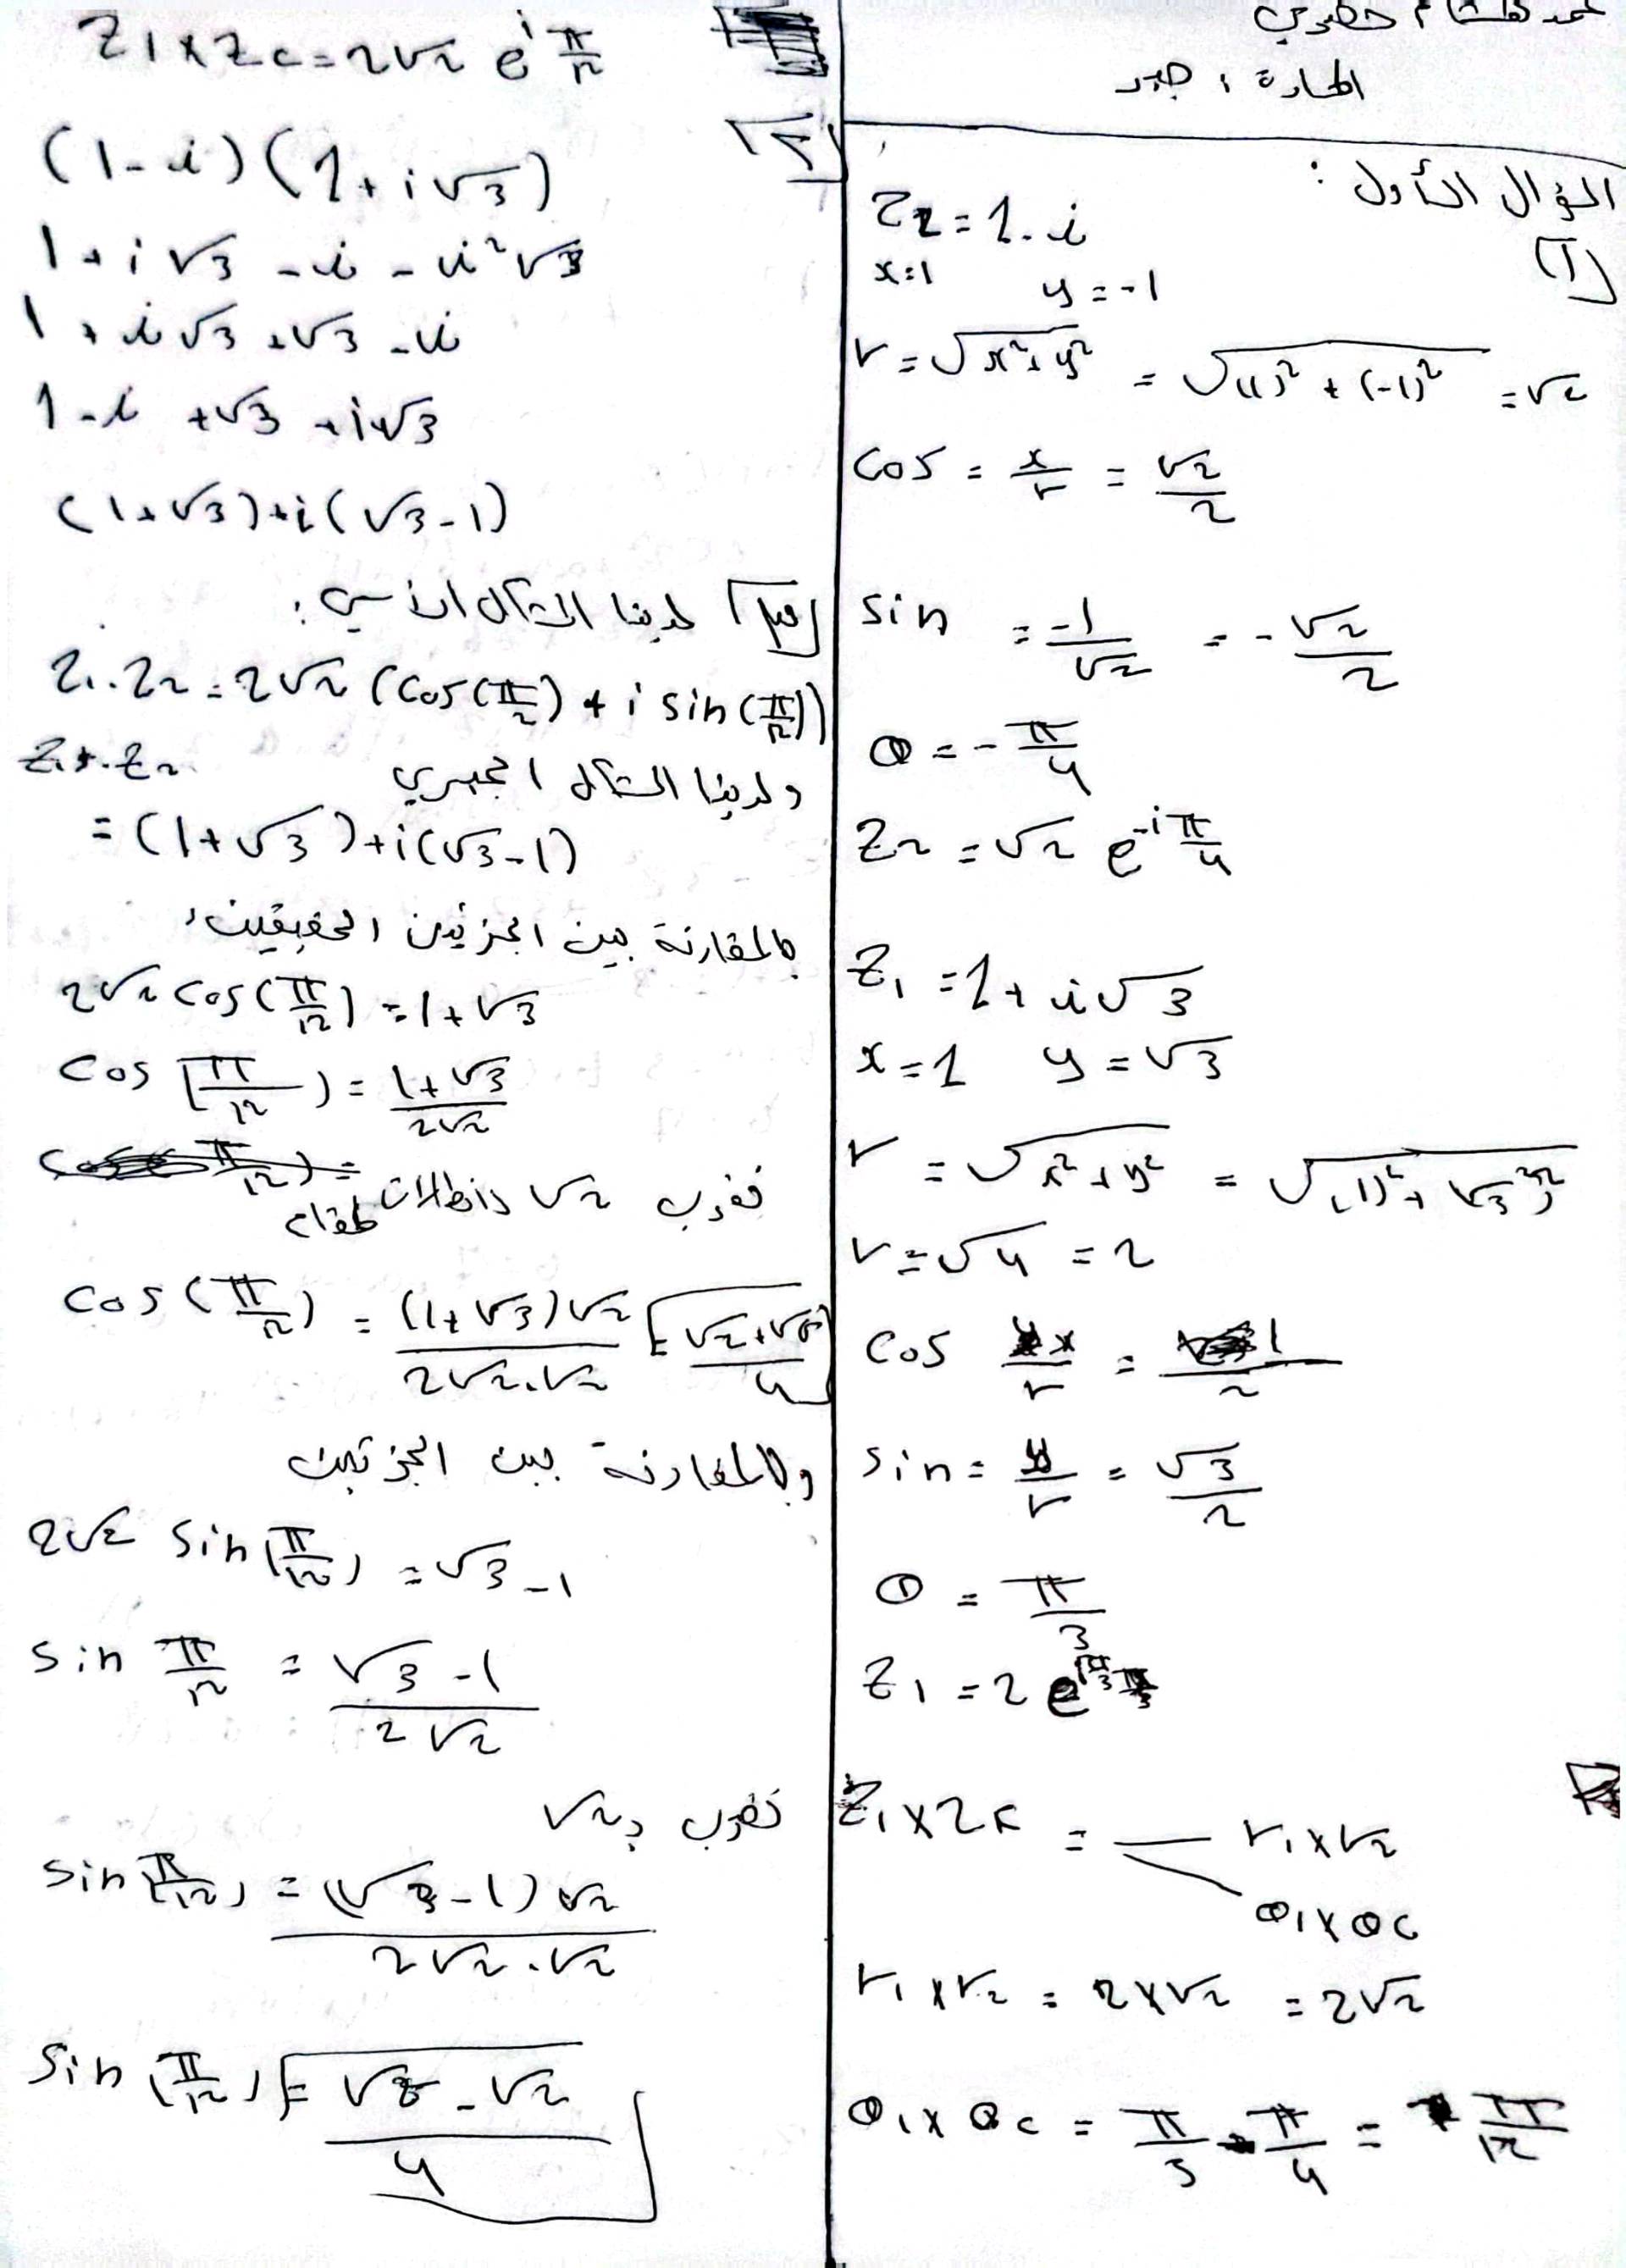 المادة : جبر
السؤال الأول :
[1]
Z2 = 1 - i
x=1 y = -1
r = √x²+y² = √(1)² + (-1)² = √2
cos = x/r = √2/2
sin = -1/√2 = - √2/2
θ = - π/4
Z2 = √2 e^-iπ/4
Z1 = 1 + i√3
x = 1 y = √3
r = √x²+y² = √(1)² + (√3)²
r = √4 = 2
cos x/r = 1/2
sin = y/r = √3/2
θ = π/3
Z1 = 2 e^iπ/3
Z1 × Z2 = r1 × r2
θ1 × θ2
r1 × r2 = 2 × √2 = 2√2
θ1 × θ2 = π/3 - π/4 = π/12
Z1 × Z2 = 2√2 e^iπ/12
[2]
(1 - i) (1 + i√3)
1 + i√3 - i - i²√3
1 + i√3 + √3 - i
1 - i + √3 + i√3
(1+√3) + i(√3-1)
[3] لدينا الشكل الأسي :
Z1 . Z2 = 2√2 (cos(π/12) + i sin(π/12))
ولدينا الشكل الجبري
Z1 . Z2
= (1+√3) + i(√3-1)
بالمقارنة بين الجزئين الحقيقين
2√2 cos(π/12) = 1+√3
cos (π/12) = 1+√3/2√2
نضرب √2
cos (π/12) = (1+√3)√2/2√2.√2 = √2+√6/4
وبالمقارنة بين الجزئين
2√2 sin(π/12) = √3 - 1
sin π/12 = √3 - 1/2√2
نضرب بـ √2
sin(π/12) = (√3-1)√2/2√2.√2
sin(π/12) = √6 - √2/4